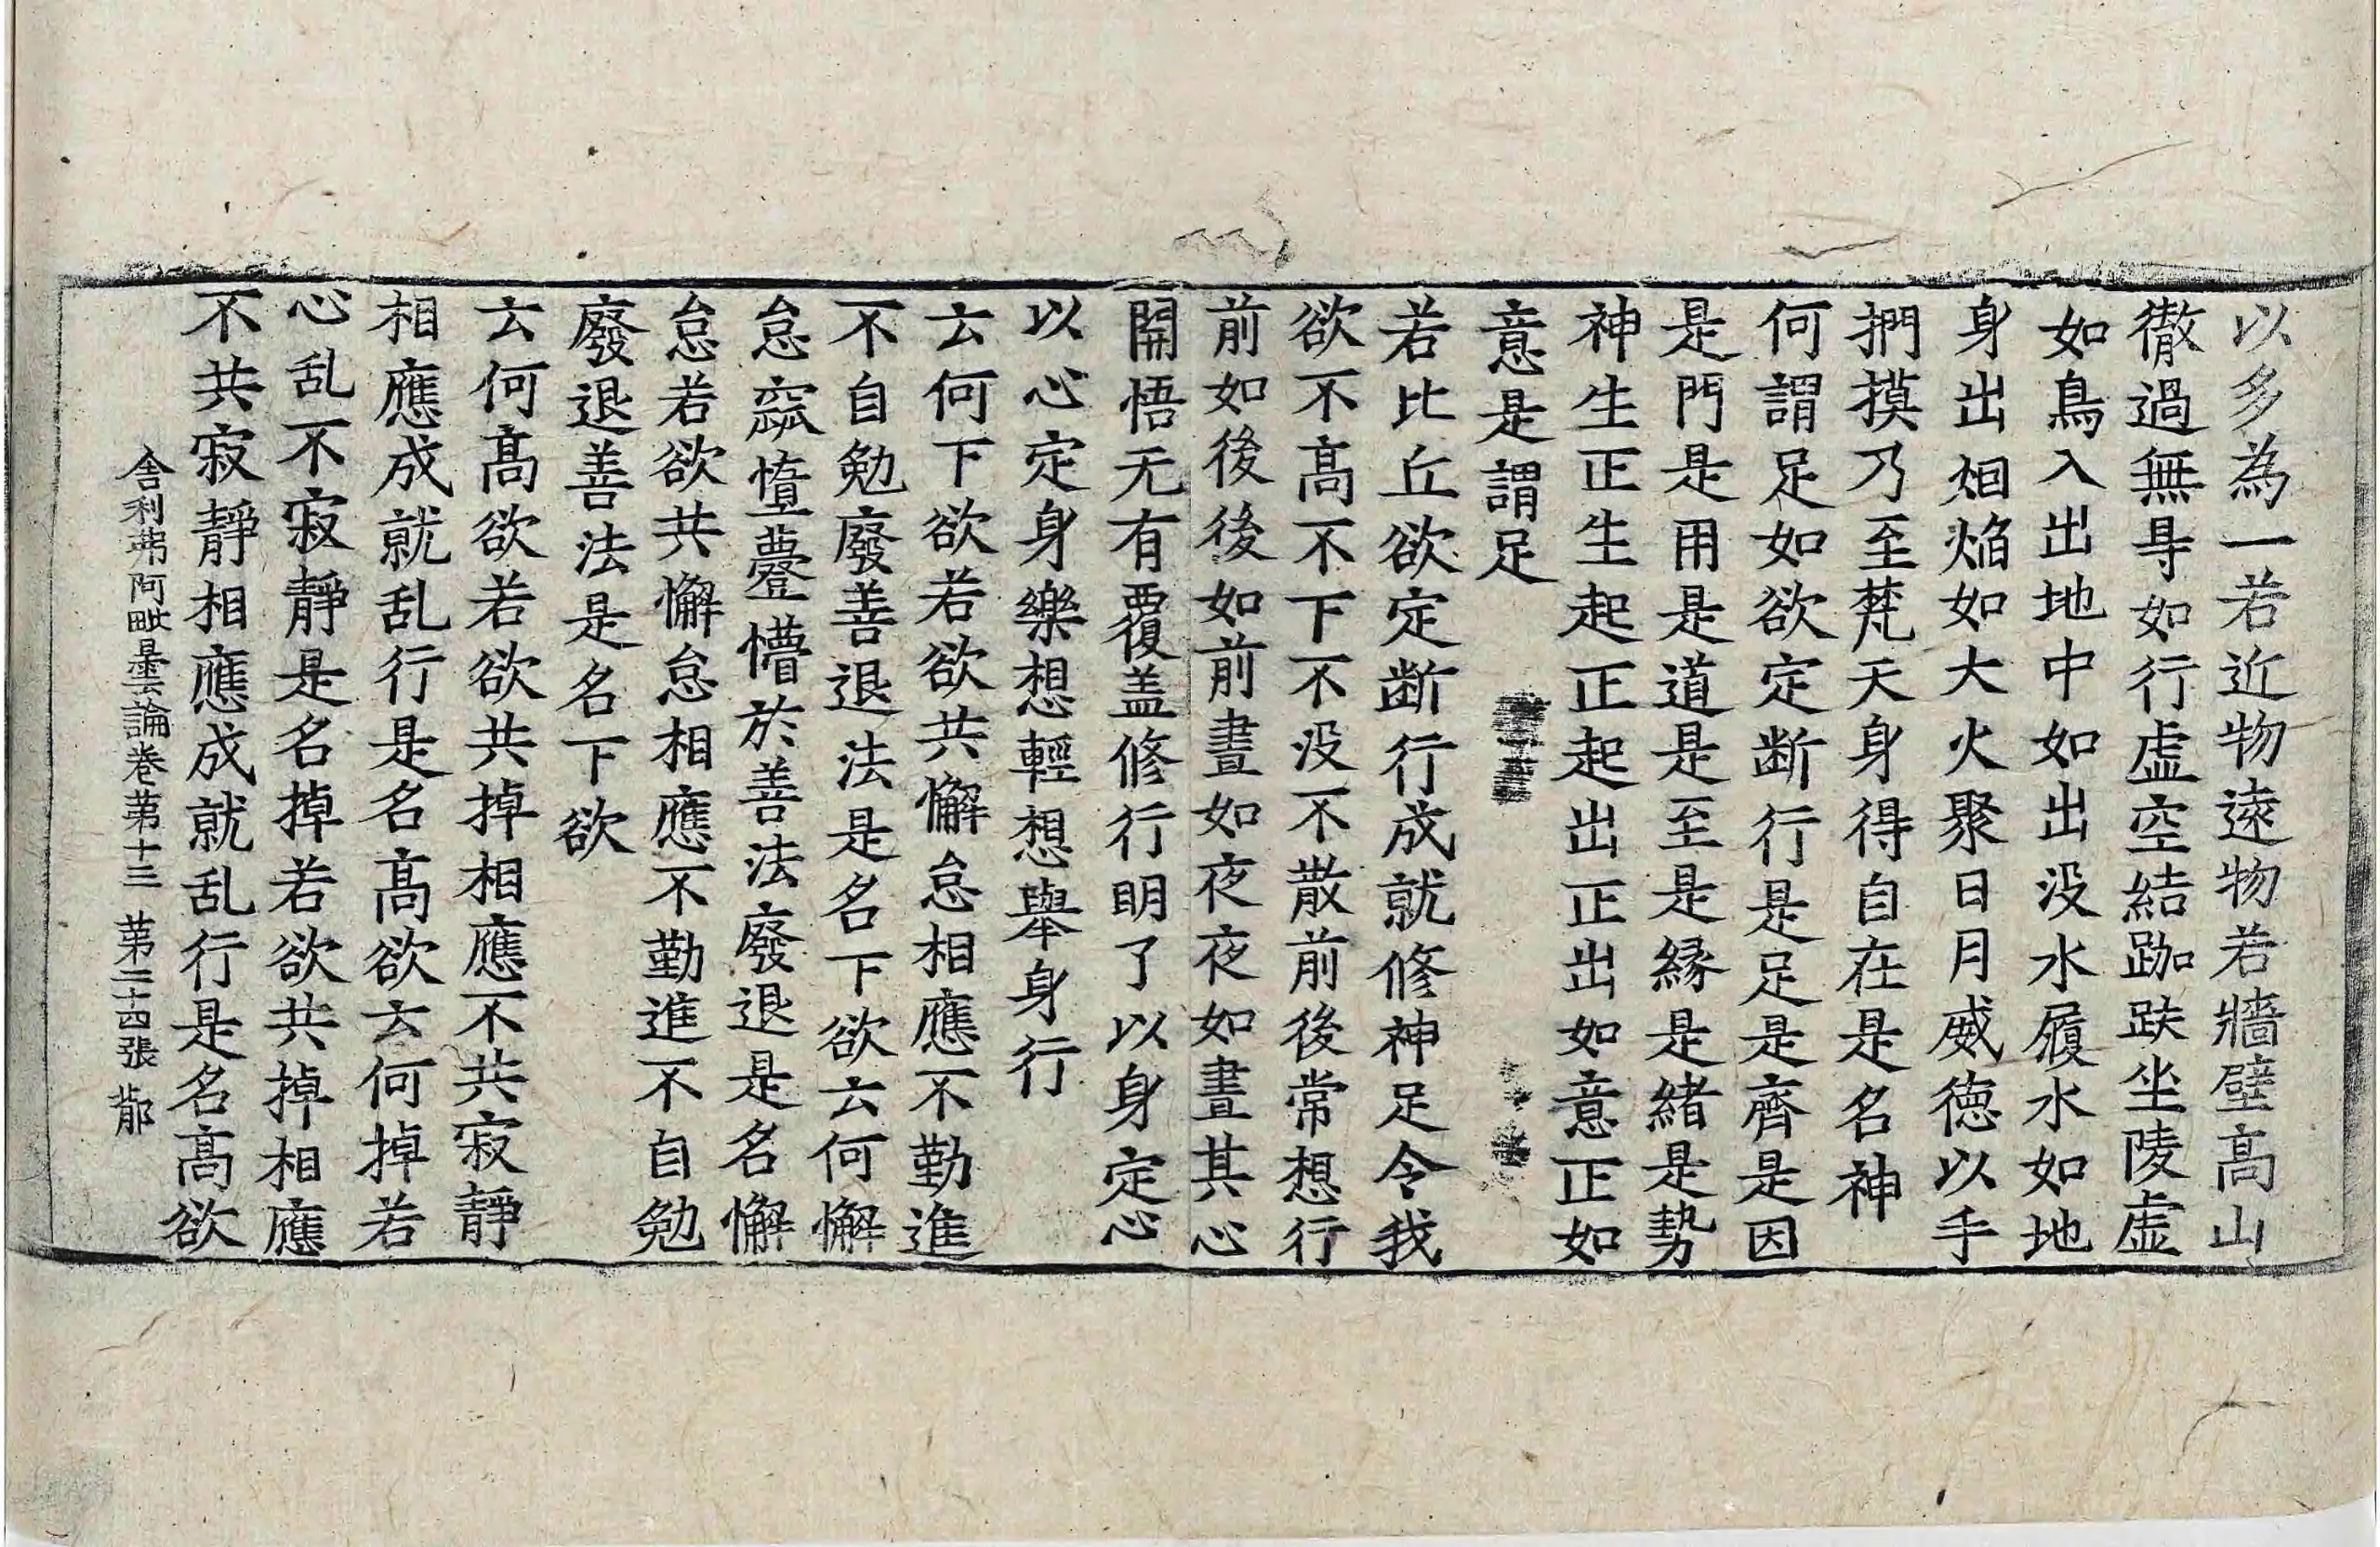 以多為一若近物遠物若牆壁高山
徹過無㝵如行虛空結跏趺坐陵虛
如鳥入出地中如出没水履水如地
身出烟焰如大火聚日月威德以手
捫摸乃至梵天身得自在是名神
何謂足如欲定断行是足是齊是因
是門是用是道是至是縁是緒是勢
神生正生起正起出正出如意正如
意是謂足
若比丘欲定断行成就修神足令我
欲不高不下不没不散前後常想行
前如後後如前晝如夜夜如晝其心
開悟无有覆盖修行明了以身定心
以心定身樂想輕想舉身行
云何下欲若欲共懈怠相應不勤進
不自勉廢善退法是名下欲云何懈
怠窳惰薹懵於善法廢退是名懈
怠若欲共懈怠相應不勤進不自勉
廢退善法是名下欲
云何高欲若欲共掉相應不共寂靜
相應成就乱行是名高欲云何掉若
心乱不寂靜是名掉若欲共掉相應
不共寂靜相應成就乱行是名高欲
舎利弗阿毗曇論卷第十三 第二十四張